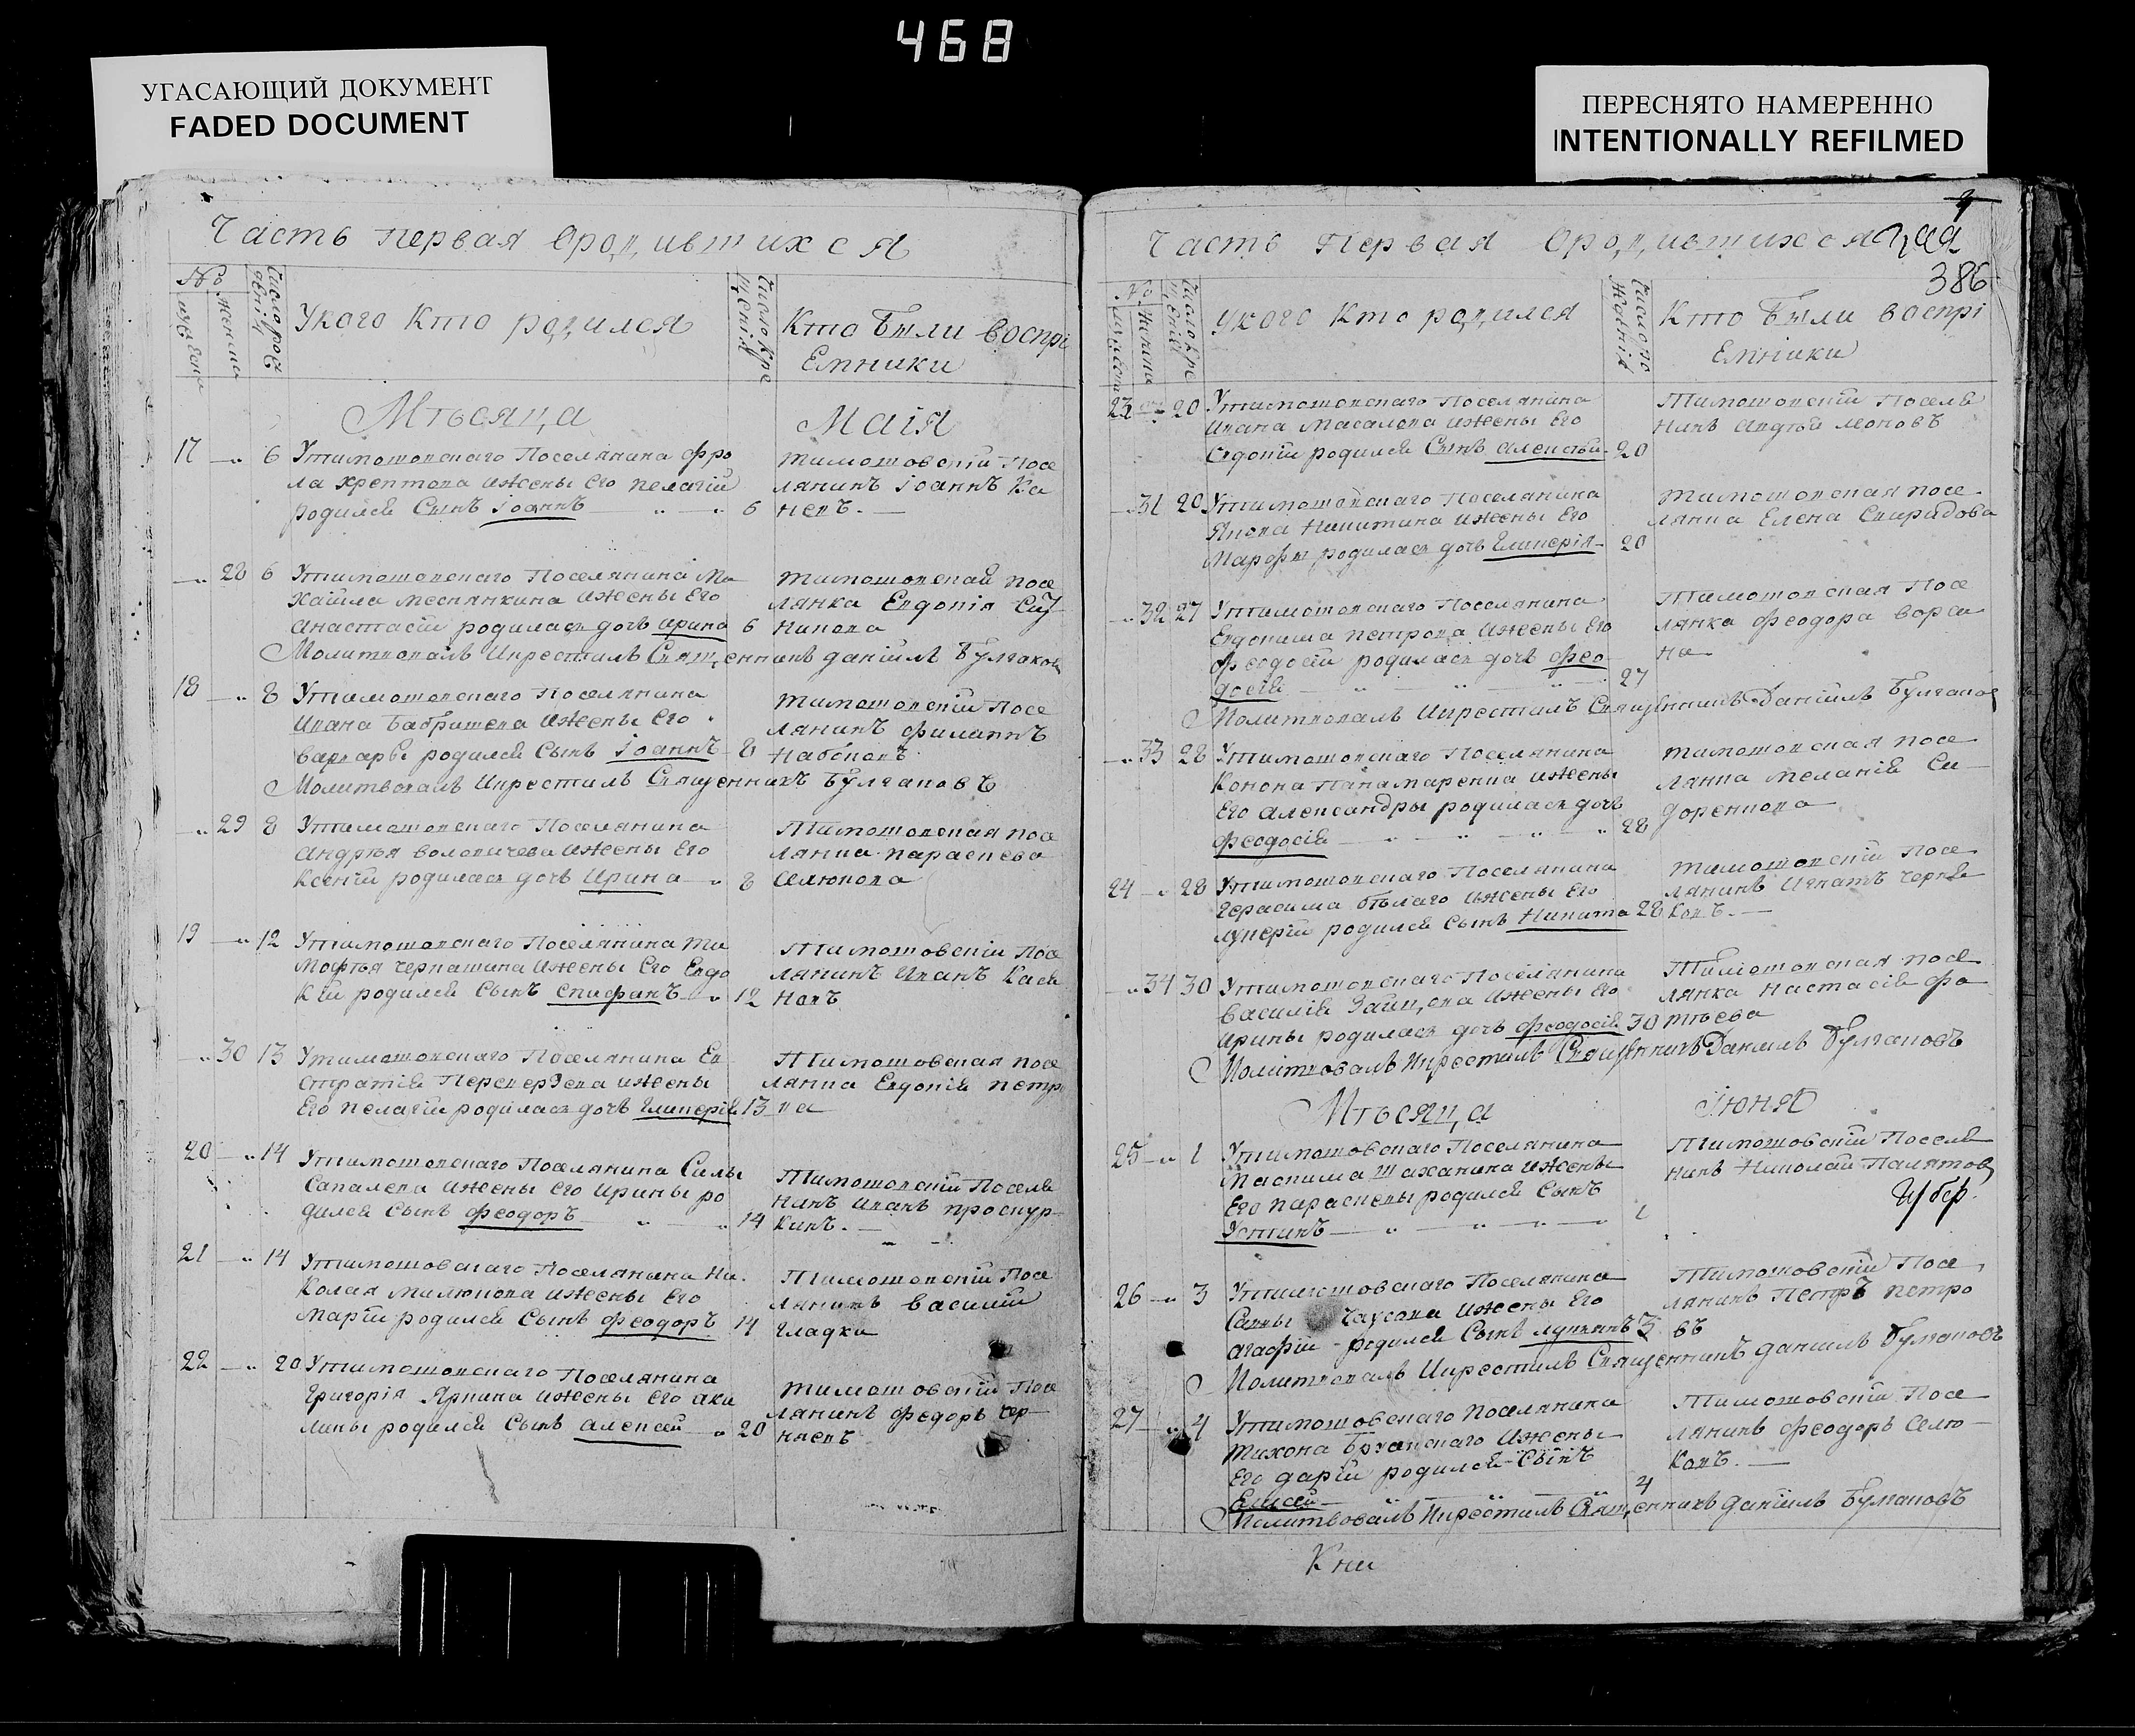 468
УГАСАЮЩИЙ ДОКУМЕНТ
FADED DOCUMENT
ПЕРЕСНЯТО НАМЕРЕННО
INTENTIONALLY REFILMED
Часть первая Ородившихся
№
Укого Кто родился
Кто Были воспрі
Емники
Мѣсяца Маія
17 6 Утимошовскаго Поселянина Фро
ла Хрептова ижены Его Пелагіи
родился Сынъ Іоаннъ 6
Тимошовскій Посе
лянинъ Іоаннъ Ка
невъ.
28 6 Утимошовскаго Поселянина Ми
хайла ижены Его
Анастасіи родилась дочь Ирина 6
Тимошовская посе
лянка Евдокія
Молитвовалъ Икрестилъ Священникъ Даніилъ Булгаковъ
18 8 Утимошовскаго Поселянина
Ивана ижены Его
Варвары родился Сынъ Іоаннъ 8
Тимошовскій Посе
лянинъ Филиппъ
Набоковъ
Молитвовалъ Икрестилъ Священникъ Булгаковъ
29 8 Утимошовскаго Поселянина
Андрѣя ижены Его
Ксеніи родилась дочь Ирина 8
Тимошовская посе
лянка Параскева
Селюкова
19 12 Утимошовскаго Поселянина Ти
мофѣя Черкашина ижены Его Евдо
кіи родился Сынъ Епифанъ 12
Тимошовскій Посе
лянинъ Иванъ Кася
новъ
30 13 Утимошовскаго Поселянина Ев
стратія ижены
Его Пелагіи родилась дочь Гликерія 13
Тимошовская посе
лянка Евдокія Петро
ва
20 14 Утимошовскаго Поселянина Силы
Сапалева ижены Его Ирины ро
дился Сынъ Феодоръ 14
Тимошовскій Поселя
нинъ Иванъ Проскур
кинъ.
21 14 Утимошовскаго Поселянина Ни
колая Милюкова ижены Его
Маріи родился Сынъ Феодоръ 14
Тимошовскій Посе
лянинъ Василій
Гладки
22 20 Утимошовскаго Поселянина
Григорія Яркина ижены Его Аки
лины родился Сынъ Алексей 20
Тимошовскій Посе
лянинъ Федоръ Чер
няевъ
Часть Первая Ородившихся
386
№
Укого Кто родился
Кто Были воспрі
Емники
23 20 Утимошовскаго Поселянина
Ивана Масалова ижены Его
Евдокіи родился Сынъ Алексѣй 20
Тимошовскій Поселя
нинъ Андрѣй Леоновъ
31 20 Утимошовскаго Поселянина
Якова Никитина ижены Его
Марфы родилась дочь Гликерія 20
Тимошовская посе
лянка Елена Спиридова
32 27 Утимошовскаго Поселянина
Евдокима Петрова ижены Его
Феодосіи родилась дочь Фео
досія 27
Тимошовская Посе
лянка Феодора
на
Молитвовалъ Икрестилъ Священникъ Даніилъ Булгаковъ
33 28 Утимошовскаго Поселянина
Конона Панамаренка ижены
Его Александры родилась дочь
Феодосія 28
Тимошовская посе
лянка Меланія Си
доренкова
24 28 Утимошовскаго Поселянина
Герасима Бѣлаго ижены Его
родился Сынъ Никита 28
Тимошовскій Посе
лянинъ Игнатъ Черня
ковъ.
34 30 Утимошовскаго Поселянина
Василія Зайцова ижены Его
Ирины родилась дочь Феодосія 30
Тимошовская посе
лянка Настасія Фо
тѣева
Молитвовалъ Икрестилъ Священникъ Даніилъ Булгаковъ
Мѣсяца Іюня
25 1 Утимошовскаго Поселянина
Максима Шаханина ижены
Его Параскевы родился Сынъ
Устинъ 1
Тимошовскій Поселя
нинъ Николай Палятов
26 3 Утимошовскаго Поселянина
Саввы Чаусова ижены Его
Агафіи родился Сынъ Лукіянъ 3
Тимошовскій Посе
лянинъ Петръ Петро
въ
Молитвовалъ Икрестилъ Священникъ Даніилъ Булгаковъ
27 4 Утимошовскаго Поселянина
Тихона ижены
Его Даріи родился Сынъ
Елисей 4
Тимошовскій Посе
лянинъ Феодоръ Селю
ковъ.
Молитвовалъ Икрестилъ Священникъ Даніилъ Булгаковъ
Кни